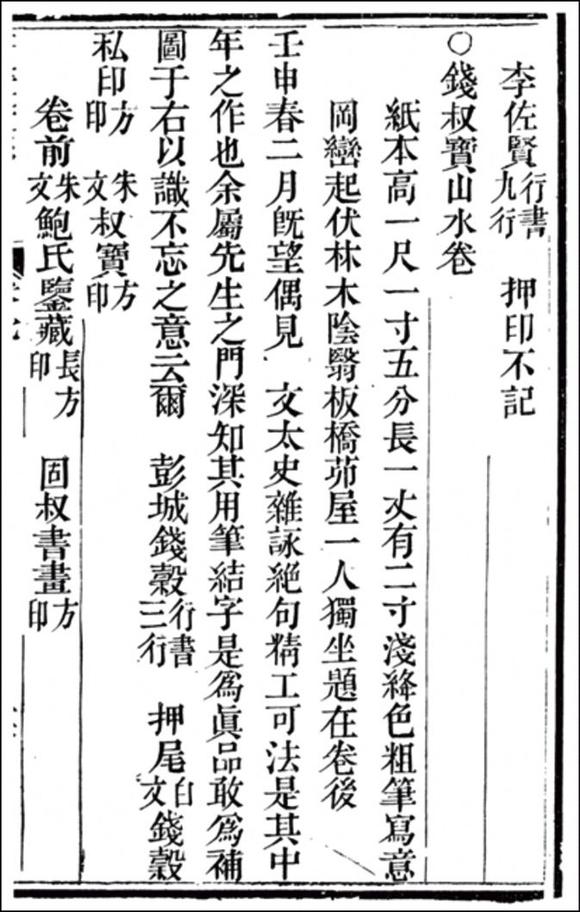 李佐賢行書九行　押印不記
○錢叔寶山水卷
紙本高一尺一寸五分長一丈有二寸淺絳色粗筆寫意
岡巒起伏林木陰翳板橋茆屋一人獨坐題在卷後
壬申春二月旣望偶見　文太史雜詠絕句精工可法是其中
年之作也余屬先生之門深知其用筆結字是爲眞品敢爲補
圖于右以識不忘之意云爾　彭城錢穀行書三行　押尾白文錢穀
私印方印　朱文叔寶方印
卷前朱文鮑氏鑒藏長方印　固叔書畫方印